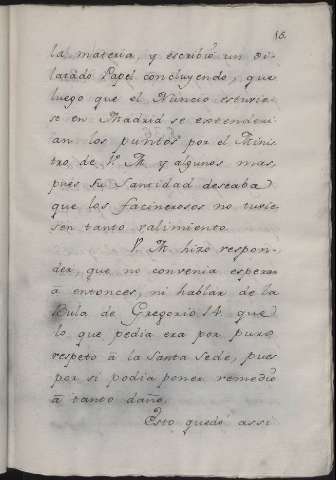 16.
la materia, y escribió un di-
latado Papel concluyendo, que
luego que el Nuncio estuvie-
se en Madrid se extenderi-
an los puntos por el Minis-
tro de V. M. y algunos mas,
pues su Santidad deseaba
que los facinerosos no tuvie-
sen tanto valimiento.
V. M. hizo respon-
der, que no convenia esperar
a entonces, ni hablar de la
Bula de Gregorio 14 que
lo que pedia era por puro
respeto à la Santa Sede, pues
por si podia poner remedio
à tanto daño.
Esto quedó assi